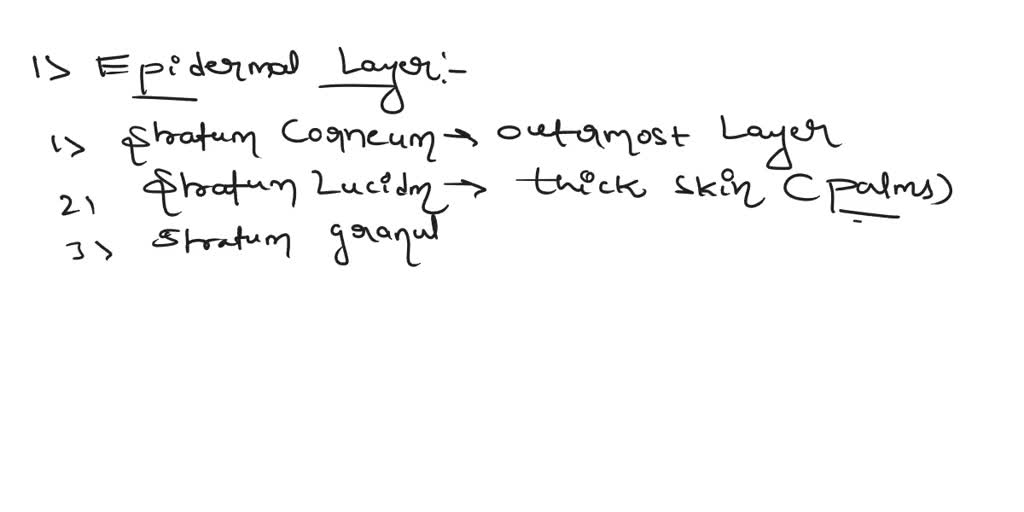 1> Epidermal Layer:-
1> Stratum Corneum → outermost Layer
2) Stratum Lucidm → thick skin (palms)
3> Stratum granul